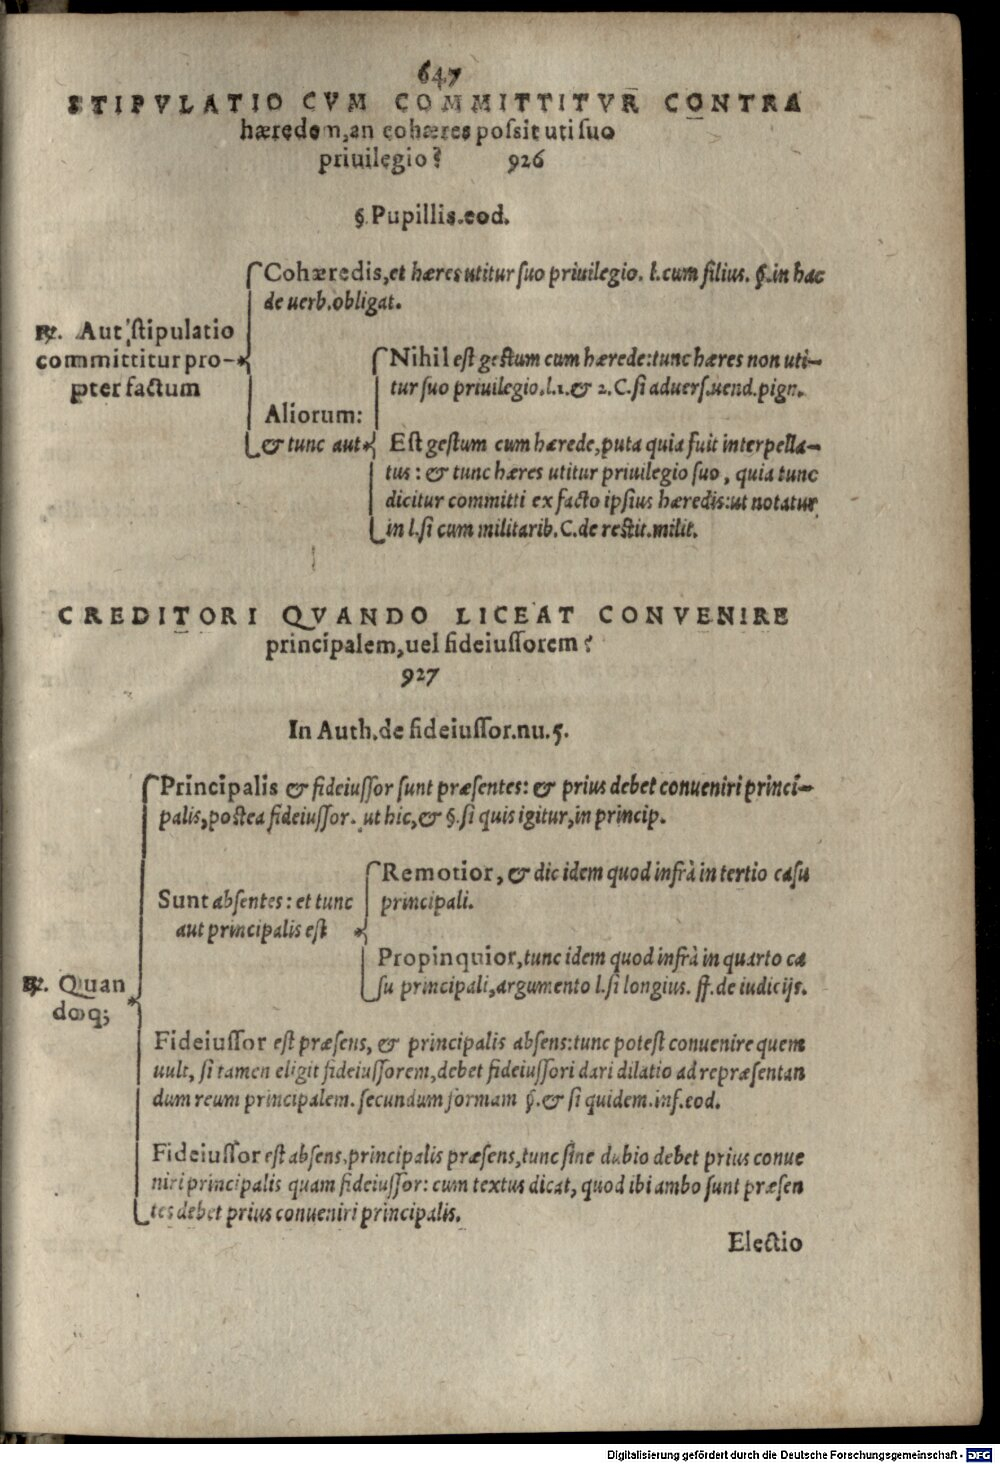 647
STIPVLATIO CVM COMMITTITVR CONTRA
hæredem, an cohæres possit uti suo
priuilegio? 926
§. Pupillis. eod.
Cohæredis, et hæres utitur suo priuilegio. l. cum filius. §. in hac
de uerb. obligat.
℞. Aut stipulatio
committitur pro-
pter factum
Nihil est gestum cum hærede: tunc hæres non uti-
tur suo priuilegio. l. 1. & 2. C. si aduers. uend. pign.
Aliorum:
& tunc aut
Est gestum cum hærede, puta quia fuit interpella-
tus: & tunc hæres utitur priuilegio suo, quia tunc
dicitur committi ex facto ipsius hæredis: ut notatur
in l. si cum militarib. C. de restit. milit.
CREDITORI QVANDO LICEAT CONVENIRE
principalem, uel fideiussorem?
927
In Auth. de fideiussor. nu. 5.
Principalis & fideiussor sunt præsentes: & prius debet conueniri princi-
palis, postea fideiussor. ut hic, & §. si quis igitur, in princip.
Sunt absentes: et tunc
aut principalis est
Remotior, & dic idem quod infrà in tertio casu
principali.
Propinquior, tunc idem quod infrà in quarto ca
su principali, argumento l. si longius. ff. de iudicijs.
℞. Quan
doq;
Fideiussor est præsens, & principalis absens: tunc potest conuenire quem
uult, si tamen eligit fideiussorem, debet fideiussori dari dilatio ad repræsentan
dum reum principalem. secundum formam §. & si quidem. inf. eod.
Fideiussor est absens, principalis præsens, tunc sine dubio debet prius conue
niri principalis quam fideiussor: cum textus dicat, quod ibi ambo sunt præsen
tes debet prius conueniri principalis.
Electio
Digitalisierung gefördert durch die Deutsche Forschungsgemeinschaft - DFG